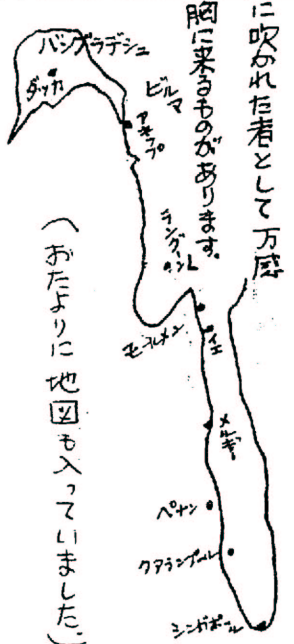 に吹かれた者として万感
胸に来るものがあります。
バングラデシュ
ダッカ
ビルマ
アキャブ
ラングーン
モールメン
イエ
メルギー
ペナン
クアランプール
シンガポール
（おたよりに地図も入っていました。）